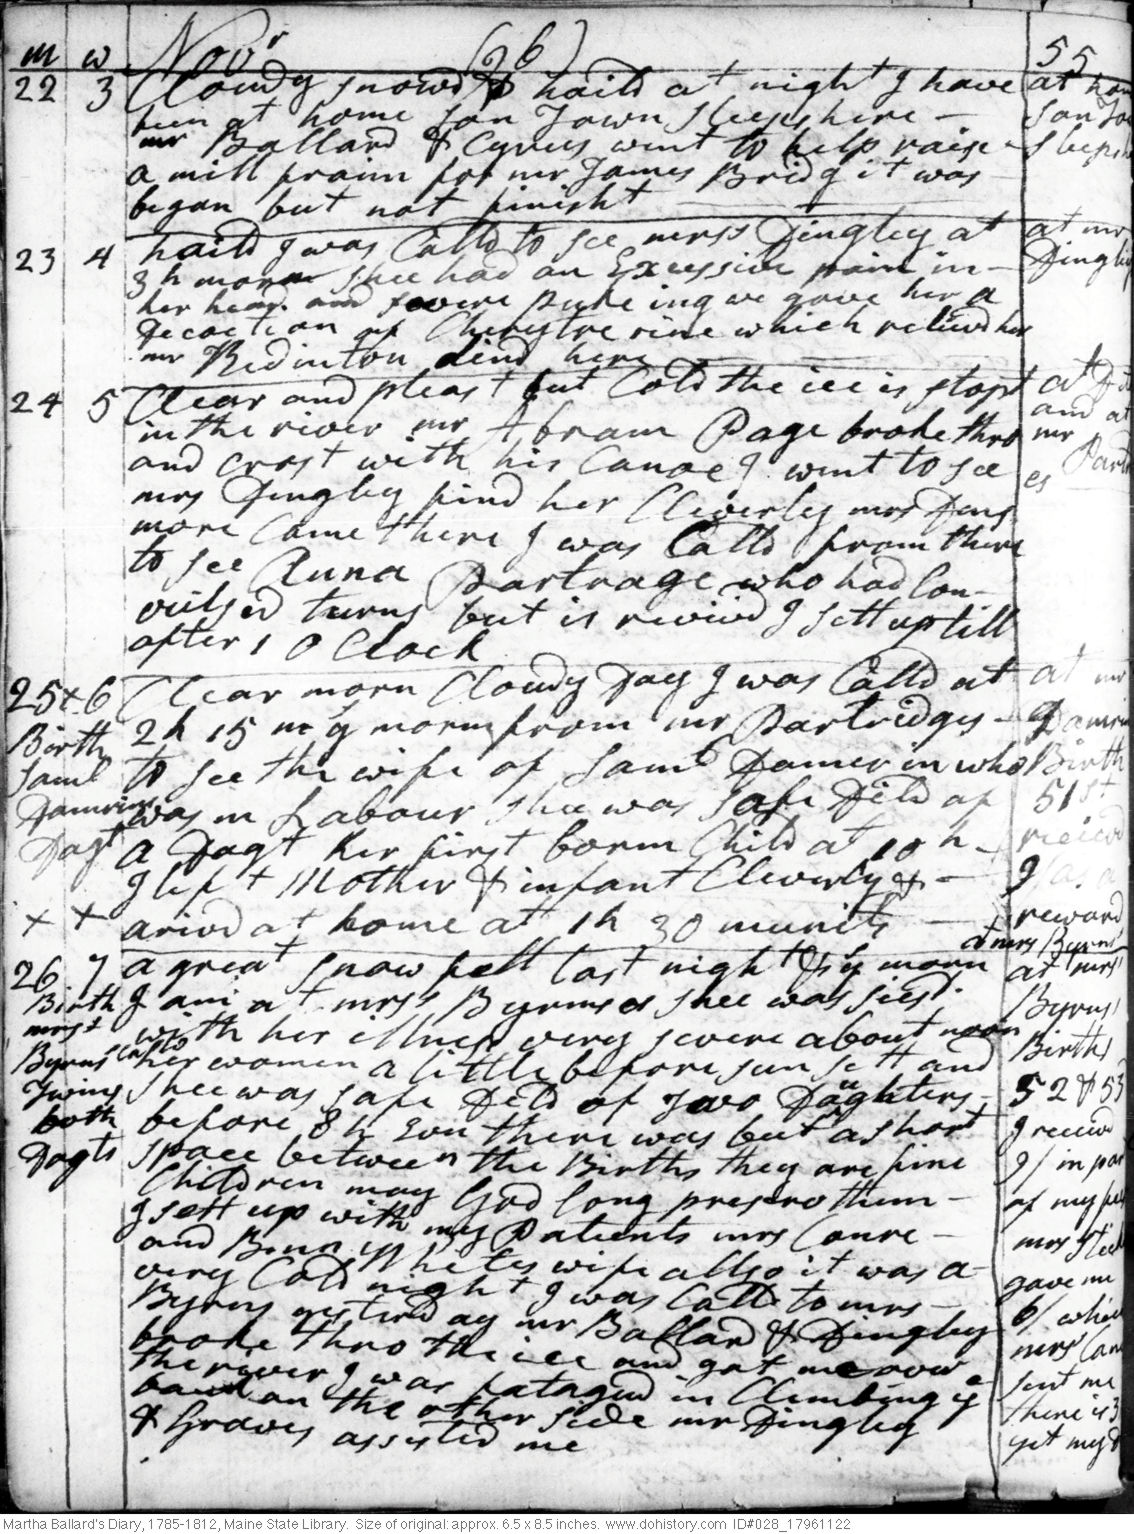 m w Novr (96) 55
22 3 Cloudy snowd & haild at night I have at hom
been at home Son Town Sleeps here - Son Tow
mr Ballard & Cyrus went to help raise - Sleeps h
a mill fraim for mr James Bridg it was
began but not finisht
23 4 haild I was Calld to see mrss Dingley at at mr
3 h morn shee had an Excessive pain in - Dingley
her head and severe puke ing we gave her a
Decoction of Cherytre rine which relievd her
mr Bedinton dind here
24 5 Clear and pleast but Cold the ice is stopt at D
in the river mr Abram Page broke thro and at
and crost with his Canoe I went to see mr Partr
mrs Dingley find her Cleverley mrs Dens es
more Came there I was Calld from there
to see Anna Partrage who had Con-
vulsed turns but is revivd I sett up till
after 1 O Clock
25 x 6 Clear morn Cloudy Day I was Calld at at mr
Birth 2 h 15 m y morn from mr Partridges - Damrin
Saml to see the wife of Saml Damerin who Birth
Damrins was in Labour Shee was Safe Deld of 51st
Dagt a Dagt her first born Child at 10 h - reciev
I left Mother & infant Cleverly & - 9/ as a
x x arivd at home at 1 h 30 munits reward
at mrs Byrns
26 7 a great snow fell last night & y morn at mrss
Birth I am at mrss Byrnses shee was siesd Byrns
mrss with her illness very severe about noon Birth
Byrns her women a little before sun sett and
Twins shee was safe Deld of Two Daghters - 52 & 53
both before 8 h Evn there was but a short I receivd
Dagts space between the Births they are fine 9/ in par
Children may God long preserv them - of my fee
I sett up with my Patients mrs Conre - mrs Steel
and Benn Whites wife allso it was a gave me
very Cold night I was Calld to mrs - 6/ which
Byrns yesterday mr Ballard & Dingley mrs Con
broke thro the ice and got me over sent me
the river I was fatagud in Climbing y there is 3
bank on the other side mr Dingley yet my D
& Graves assisted me
Martha Ballard's Diary, 1785-1812, Maine State Library. Size of original: approx. 6.5 x 8.5 inches. www.dohistory.com ID#028_17961122